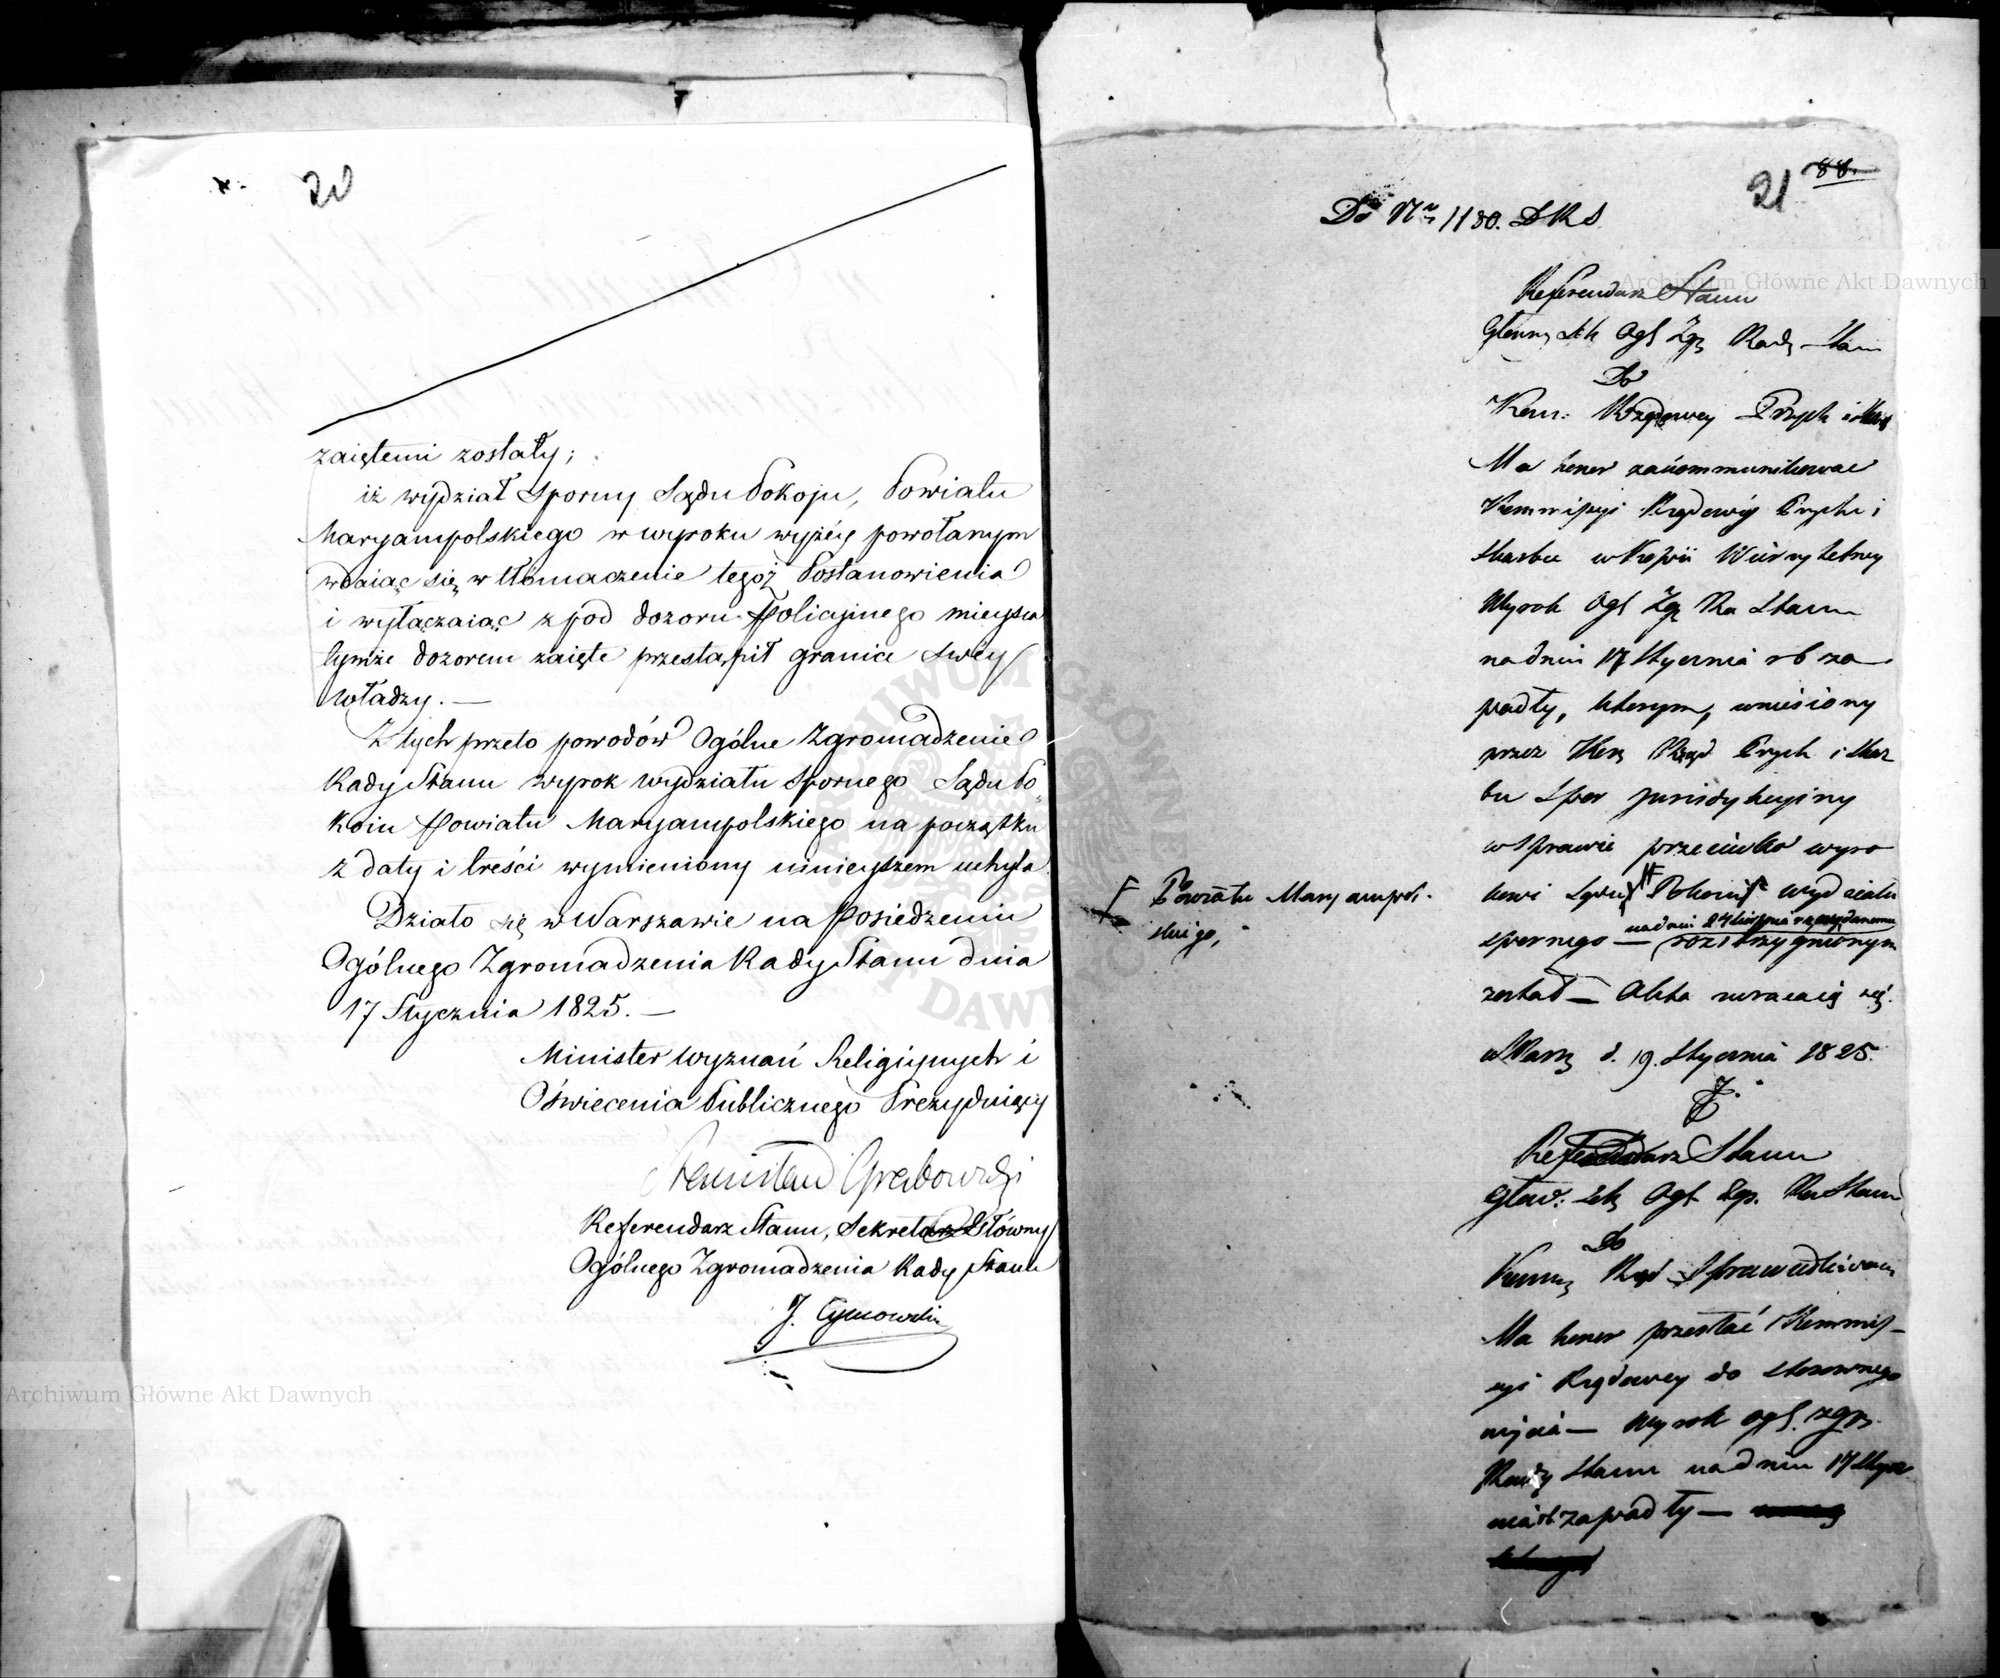 20
zaiętemi zostały;
iż wydział Sporny Sądu Pokoju, Powiatu
Maryampolskiego w wyroku wyżéy powołanym
wdaiąc się w tłómaczenie tegoż Postanowienia
i wyłączaiąc z pod dozoru Policyjnego mieysca
tymże dozorem zaięte przestąpił granice swéy
władzy. —
Z tych przeto powodów Ogólne Zgromadzenie
Rady Stanu wyrok wydziału Spornego Sądu Po-
koiu Powiatu Maryampolskiego na początku
z daty i treści wymieniony ninieyszem uchyla.
Działo się w Warszawie na Posiedzeniu
Ogólnego Zgromadzenia Rady Stanu dnia
17 Stycznia 1825. —
Minister Wyznań Religiynych i
Oświecenia Publicznego Prezyduiący
Stanisław Grabowski
Referendarz Stanu, Sekretarz Główny
Ogólnego Zgromadzenia Rady Stanu
J. Tymowski
21 88.
Do Nr 1180. DRS
Referendarz Stanu
Główny Sek Ogl Zgr Rady Stanu
Do
Kom: Rządowey Przych i Skar
Ma honor zakommunikować
Kommissyi Rządowéy Przych i
Skarbu w kopii Wierzytelney
Wyrok Ogl Zgr Ra Stanu
na dniu 17 Stycznia rb za-
padły, którym, wniesiony
przez Kom Rząd Przych i Skar
bu Spor jurisdykcyiny
w sprawie przeciwko wyro
kowi Sądu Pokoiu Wydziału
Powiatu Maryampol-
skiego,
na dniu 24 Sierpnia
spornego — rozstrzygnionym
został — Akta zwracaią się.
w Warsz d. 19. Stycznia 1825.
Referendarz Stanu
Głów: Sek Ogl Zgr. Ra Stanu
Do
Komm Rząd Sprawiedliwości
Ma honor przesłać Kommis-
syi Rządowey do stosownego
użycia — Wyrok ogl. zgr.
Rady Stanu na dniu 17 Stycz
nia rb zapadły —
Archiwum Główne Akt Dawnych
Archiwum Główne Akt Dawnych
ARCHIWUM GŁÓWNE AKT DAWNYCH